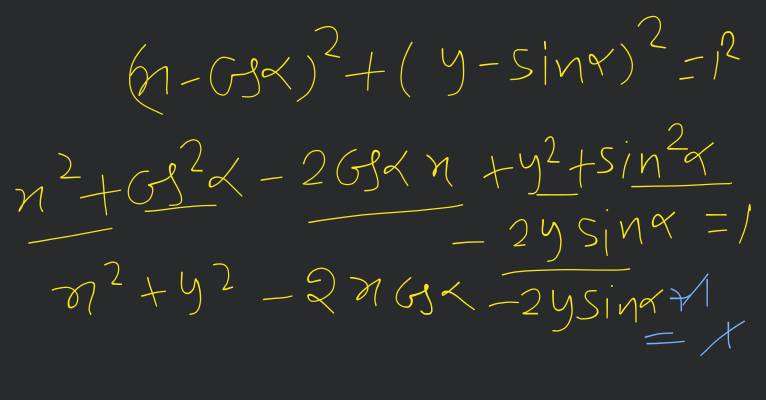 (x-cosα)²+(y-sinα)²=1²
x²+cos²α-2cosαx+y²+sin²α
-2ysinα=1
x²+y²-2xcosα-2ysinα+1
=1